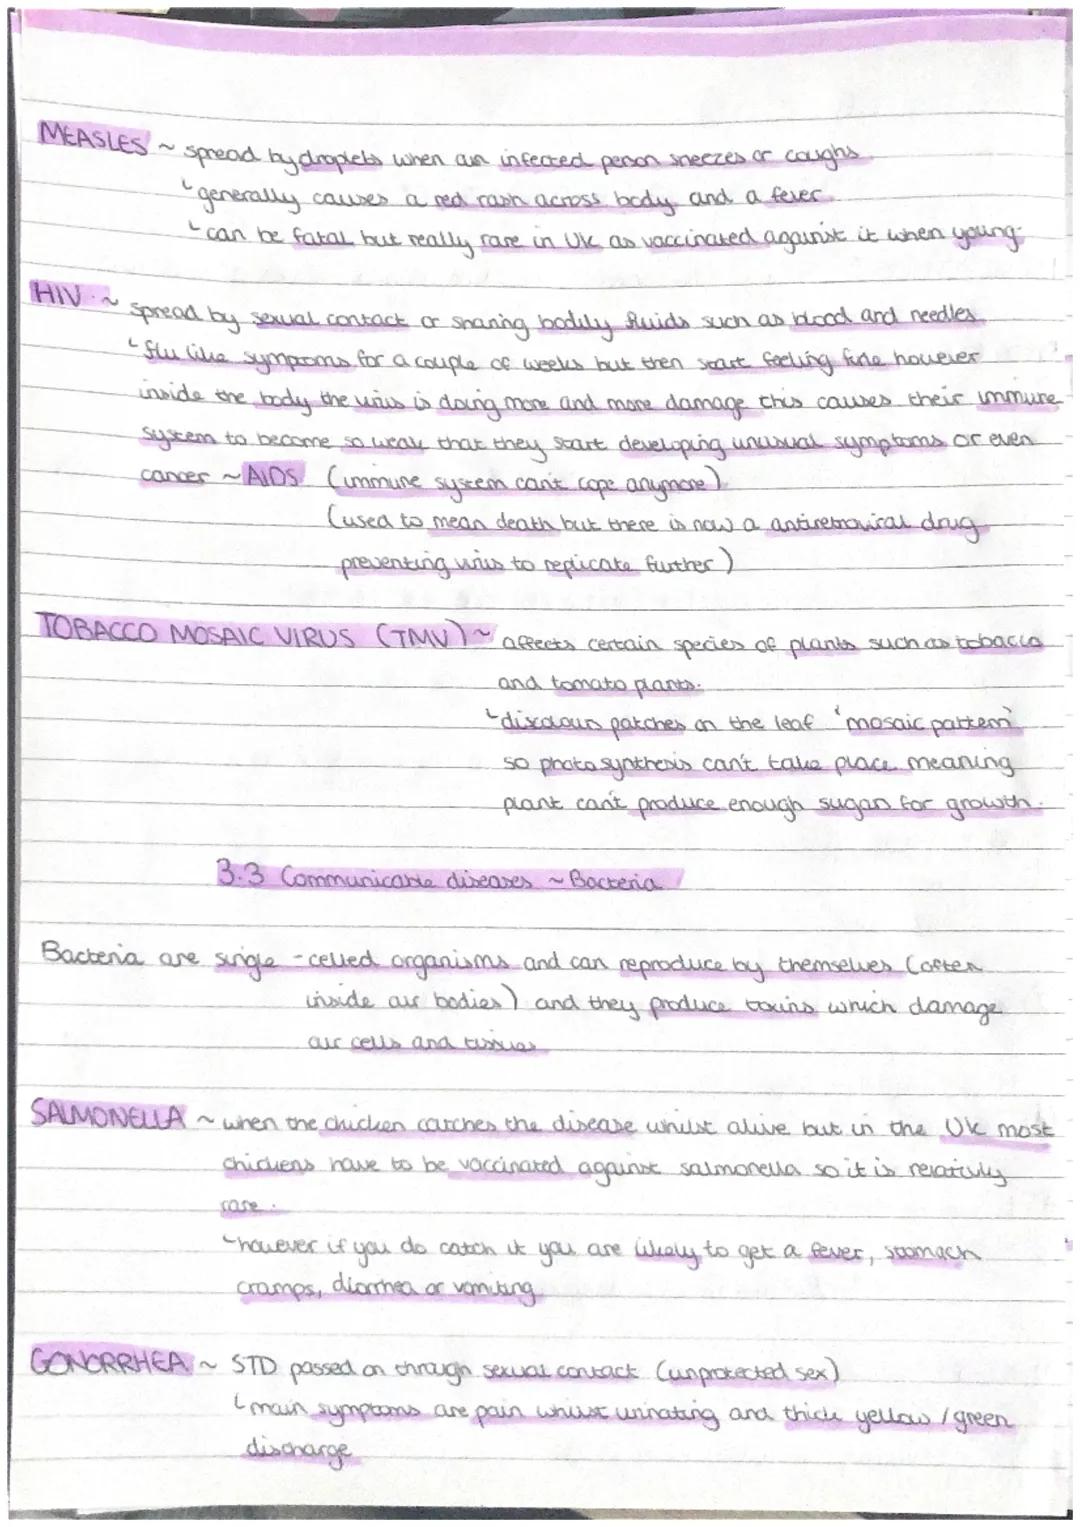 MEASLES ~ spread by droplets when an infected person sneezes or coughs
generally causes a red rash across body and a fever.
can be fatal but really rare in UK as vaccinated against it when young.
HIV ~ spread by sexual contact or sharing bodily fluids such as blood and needles
flu like symptoms for a couple of weeks but then start feeling fine however
inside the body the virus is doing more and more damage this causes their immune
system to become so weak that they start developing unusual symptoms or even
cancer ~ AIDS (immune system can't cope anymore)
(used to mean death but there is now a antiretroviral drug
preventing virus to replicate further)
TOBACCO MOSAIC VIRUS (TMV) ~ affects certain species of plants such as tobacco
and tomato plants.
discolours patches on the leaf 'mosaic pattern'
so photosynthesis can't take place meaning
plant can't produce enough sugars for growth.
3.3 Communicable diseases ~ Bacteria
Bacteria are single-celled organisms and can reproduce by themselves (often
inside our bodies) and they produce toxins which damage
our cells and tissues
SALMONELLA ~ when the chicken catches the disease whilst alive but in the UK most
chickens have to be vaccinated against salmonella so it is relatively
rare.
however if you do catch it you are likely to get a fever, stomach
cramps, diarrhea or vomiting
GONORRHEA ~ STD passed on through sexual contact (unprotected sex)
main symptoms are pain whilst urinating and thick yellow / green
discharge